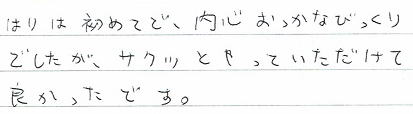 はりは初めてで、内心おっかなびっくり
でしたが、サクッとやっていただけて
良かったです。